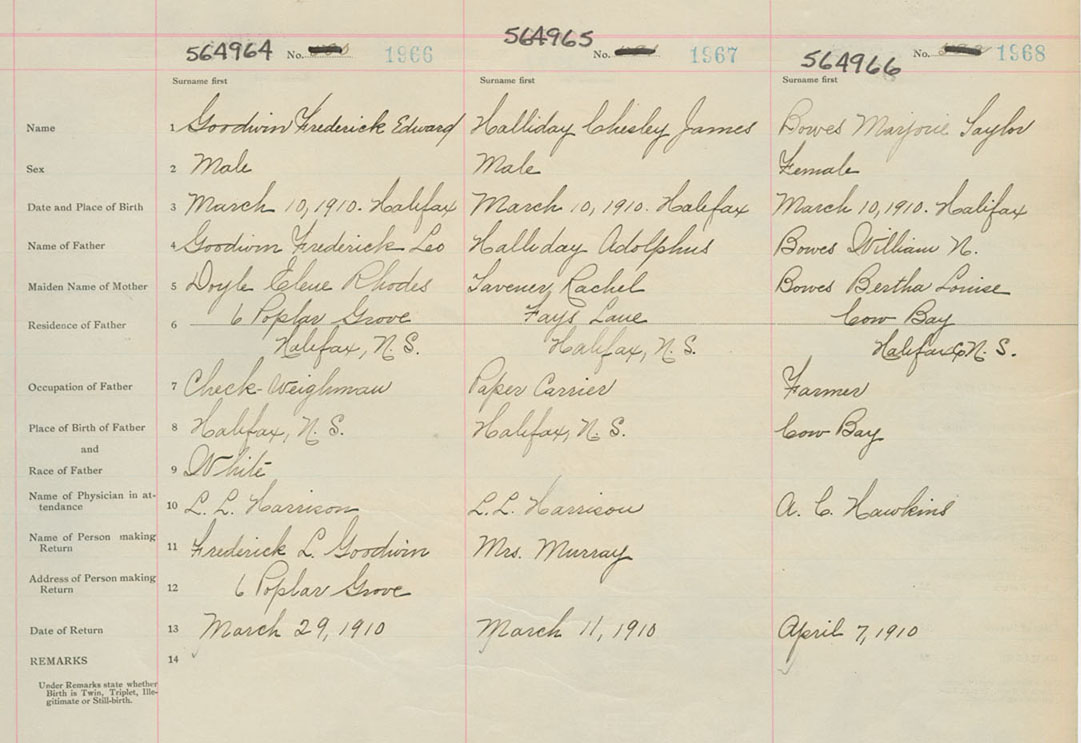 564964 No. 1966 564965 No. 1967 564966 No. 1968
Surname first Surname first Surname first
Name 1 Goodwin Frederick Edward Halliday Chesley James Bowes Marjorie Taylor
Sex 2 Male Male Female
Date and Place of Birth 3 March 10, 1910. Halifax March 10, 1910. Halifax March 10, 1910. Halifax
Name of Father 4 Goodwin Frederick Leo Halliday Adolphus Bowes William N.
Maiden Name of Mother 5 Doyle Elene Rhodes Tavener Rachel Bowes Bertha Louise
Residence of Father 6 6 Poplar Grove Fays Lane Cow Bay
Halifax, N. S. Halifax, N. S. Halifax Co N. S.
Occupation of Father 7 Check-Weighman Paper Carrier Farmer
Place of Birth of Father 8 Halifax, N. S. Halifax, N. S. Cow Bay
and
Race of Father 9 White
Name of Physician in at-
tendance 10 L. L. Harrison L. L. Harrison A. C. Hawkins
Name of Person making
Return 11 Frederick L. Goodwin Mrs. Murray
Address of Person making
Return 12 6 Poplar Grove
Date of Return 13 March 29, 1910 March 11, 1910 April 7, 1910
REMARKS 14
Under Remarks state whether
Birth is Twin, Triplet, Ille-
gitimate or Still-birth.